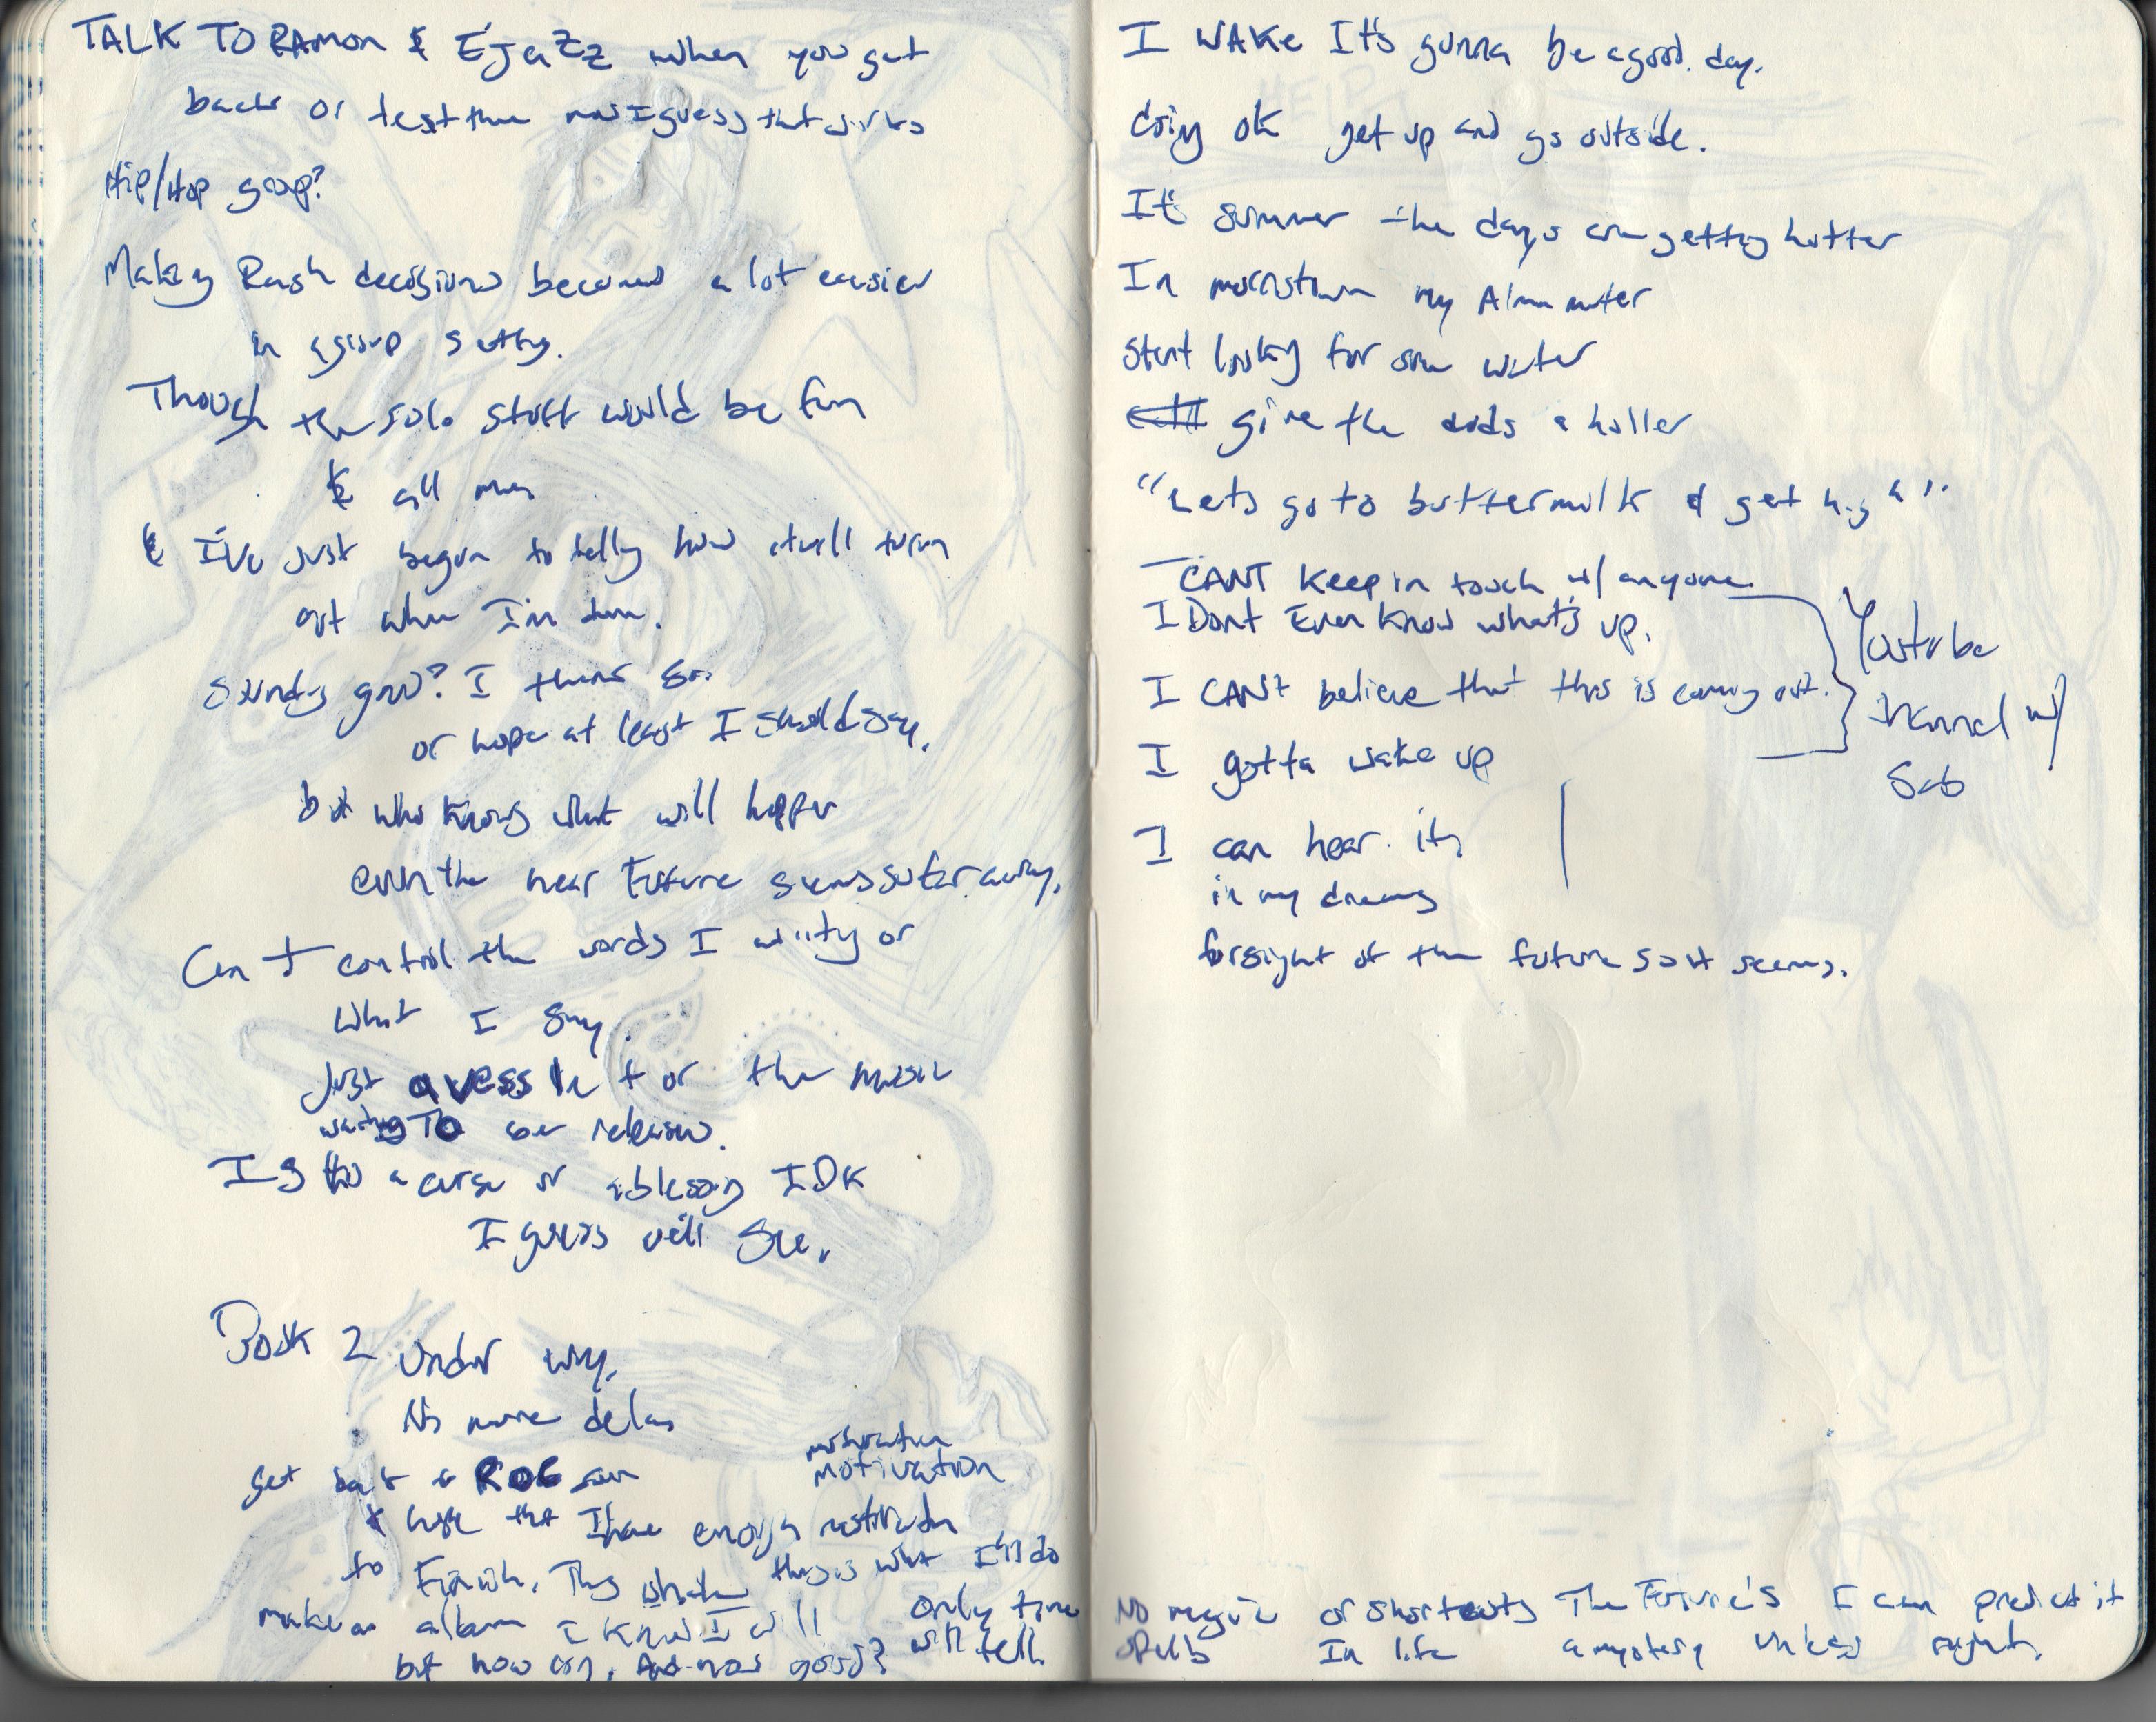 TALK TO RAMON & EJaZz when you get
back or text them now I guess that works
Hip/Hop group?
Making Rash decisions becomes a lot easier
in a group setting.
Though the solo stuff would be fun
& all
& I've just begun to tell how it will turn
out when I'm done.
Sounds good? I think so.
or hope at least I should say.
but who knows what will happen
even the near Future seems so far away.
Can I control the words I write or
what I say.
Just a vessle for the music
waiting TO be released.
Is this a curse or a blessing IDK
I guess we'll see.
Book 2 Under way.
No more delay
get
motivation
motivation
& hope that I have enough motivation
to Finish. this is what I'll do
make an album I know I will
but how long. And how good?
Only time
will tell
I WAKE It's gunna be a good. day.
doing ok get up and go outside.
It's summer the days are getting hotter
In morristown my Alma mater
start looking for some water
give the duds a holler
"Lets go to buttermilk & get high".
CANT Keep in touch w/ anyone
I Dont Even Know what's up.
I CAN't believe that this is coming out.
Youtube
channel w/
Seb
I gotta wake up
I can hear it,
in my dreams
forsight of the future so it seems.
No magic or shortcuts The Future's I can predict it
spells In life a mystery unless right.